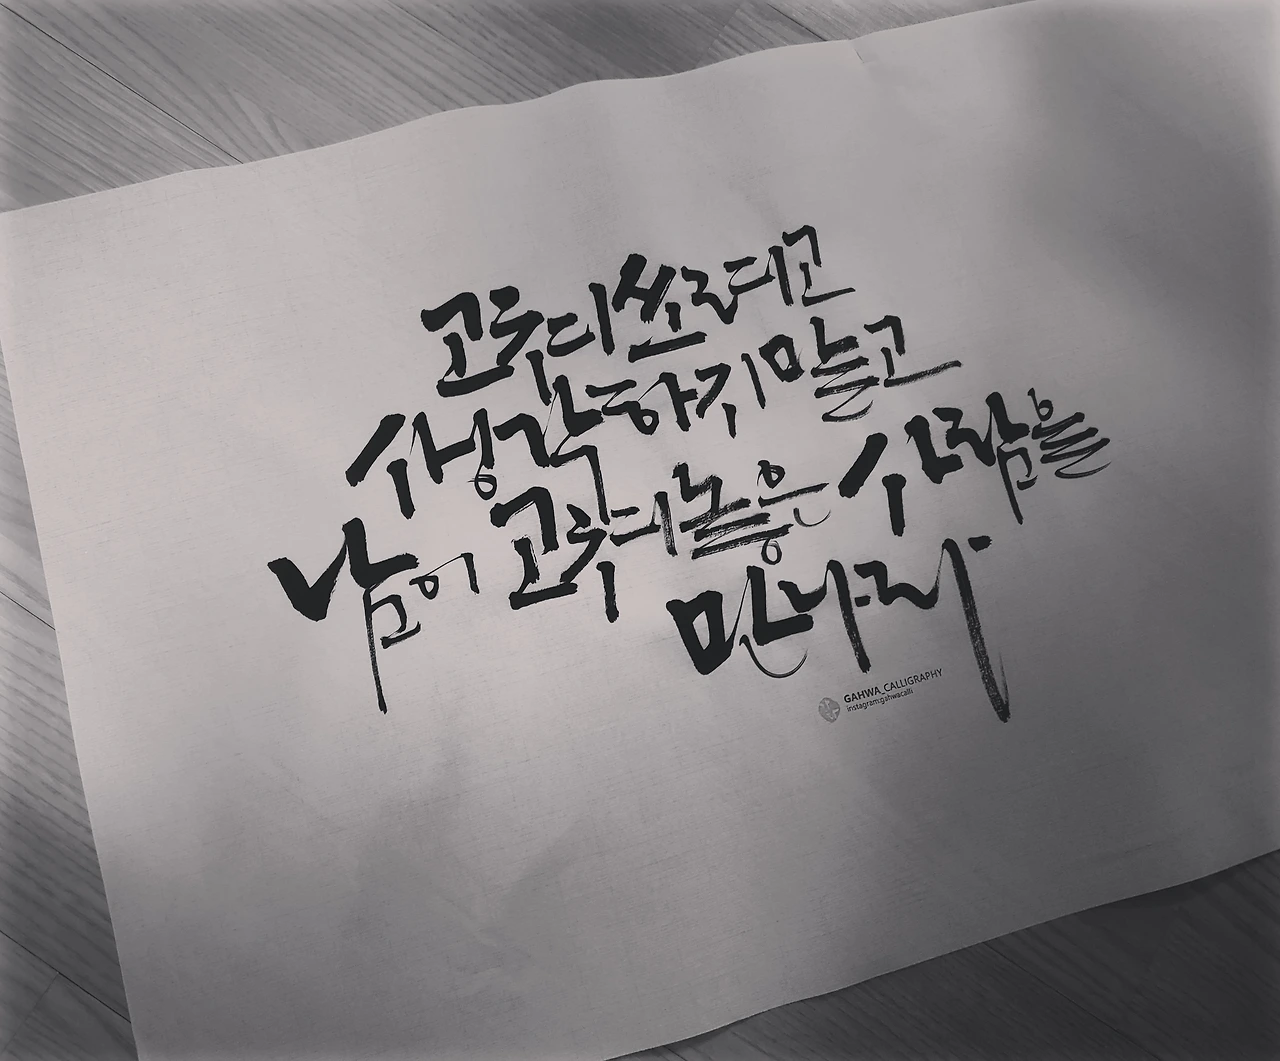 고쳐 쓰려고
생각하지 말고
남이 고쳐 놓은 사람을
만나라
GAHWA_CALLIGRAPHY
instagram:gahwacalli